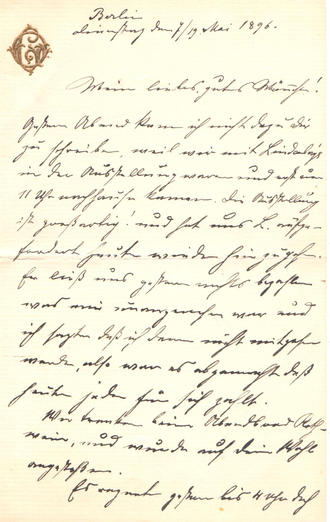 Berlin
Dienstag den 7/19 Mai 1896.
Mein liebes, gutes Mänchen!
Gestern Abend kam ich nicht dazu dir
zu schreiben, weil wir mit Lindenbergs
in der Ausstellung waren und erst um
11 Uhr nachhause kamen. Die Ausstellung
ist großartig! und hat uns L. aufge-
fordert heute wieder hin zu gehn.
Er ließ uns gestern nichts bezahlen
was mir unangenehm war und
ich sagte daß ich dann nicht mitgehen
werde, also war es abgemacht daß
heute jeder für sich zahlt.
Wir tranken beim Abendbrod Roth-
wein, und wurde auf dein Wohl
angestoßen.
Es regnete gestern bis 4 Uhr doch